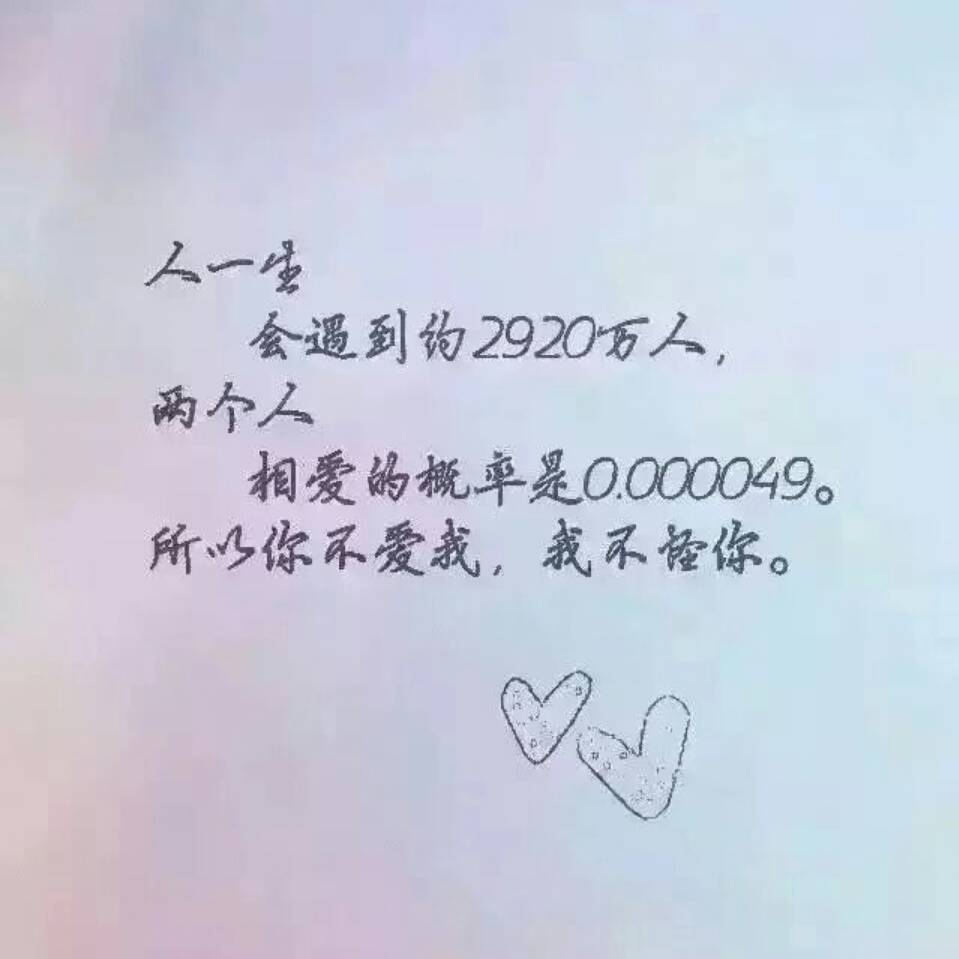 人一生
会遇到约2920万人，
两个人
相爱的概率是0.000049。
所以你不爱我，我不怪你。